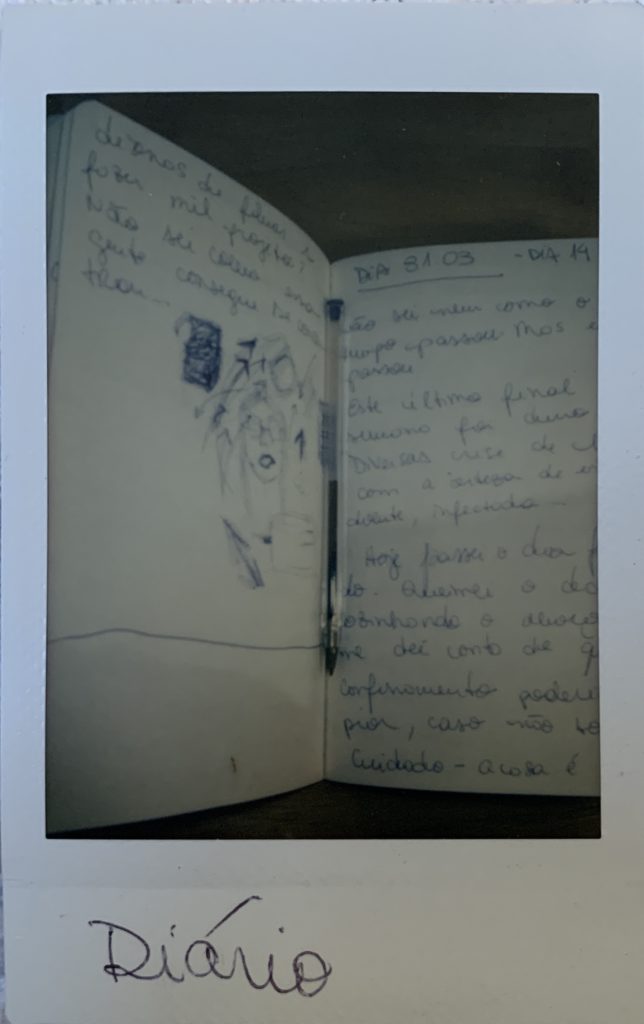 fazer mil
Não sei como essa
gente consegue se
DIA 31.03 - DIA 14
não sei nem como o
tempo passou mas e
passou
Este último final
semana foi
Diversas crise de
com a certeza de e
doente, infectada...
Hoje passei o dia
do. Queimei o ded
cozinhando o almoço
me dei conta de q
confinamento
pior, caso não to
cuidado - a casa é
Diário